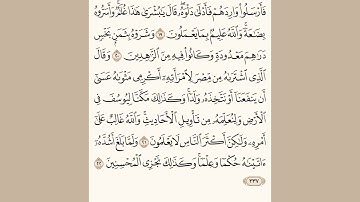 فَأَرْسَلُوا۟ وَارِدَهُمْ فَأَدْلَىٰ دَلْوَهُۥ قَالَ يَـٰبُشْرَىٰ هَـٰذَا غُلَـٰمٌ وَأَسَرُّوهُ
بِضَـٰعَةً وَٱللَّهُ عَلِيمٌۢ بِمَا يَعْمَلُونَ ١٩ وَشَرَوْهُ بِثَمَنٍۭ بَخْسٍ
دَرَٰهِمَ مَعْدُودَةٍ وَكَانُوا۟ فِيهِ مِنَ ٱلزَّٰهِدِينَ ٢٠ وَقَالَ
ٱلَّذِى ٱشْتَرَىٰهُ مِن مِّصْرَ لِٱمْرَأَتِهِۦٓ أَكْرِمِى مَثْوَىٰهُ عَسَىٰٓ
أَن يَنفَعَنَآ أَوْ نَتَّخِذَهُۥ وَلَدًا وَكَذَٰلِكَ مَكَّنَّا لِيُوسُفَ فِى
ٱلْأَرْضِ وَلِنُعَلِّمَهُۥ مِن تَأْوِيلِ ٱلْأَحَادِيثِ وَٱللَّهُ غَالِبٌ عَلَىٰٓ
أَمْرِهِۦ وَلَـٰكِنَّ أَكْثَرَ ٱلنَّاسِ لَا يَعْلَمُونَ ٢١ وَلَمَّا بَلَغَ أَشُدَّهُۥٓ
ءَاتَيْنَـٰهُ حُكْمًا وَعِلْمًا وَكَذَٰلِكَ نَجْزِى ٱلْمُحْسِنِينَ ٢٢
٢٣٧